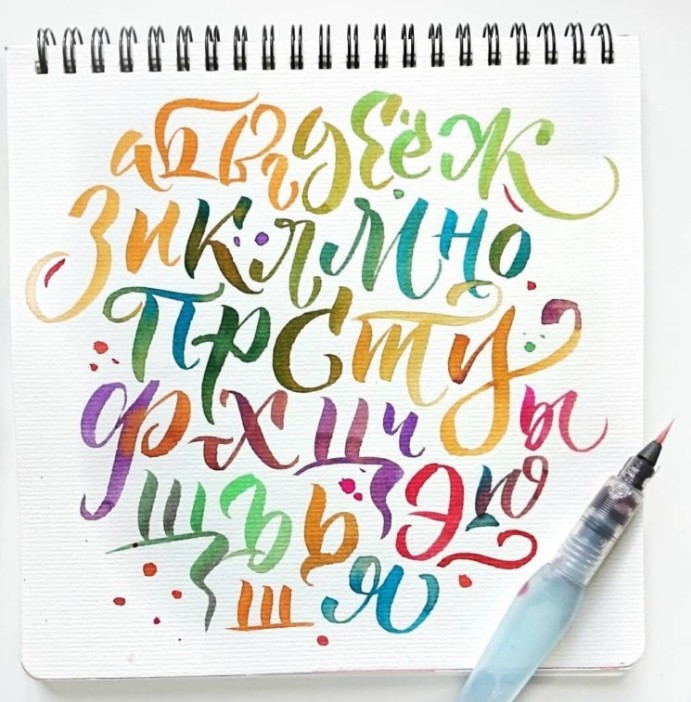 абвгдеёж
зиклмно
прсту
фхцчы
щъьэю
шя